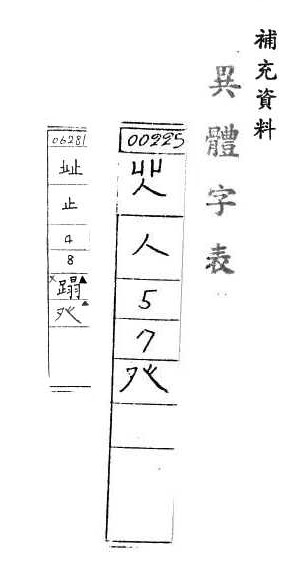 補充資料
異體字表
00225
人
5
7
癶
06281
止
4
8
×蹋▲
癶▲